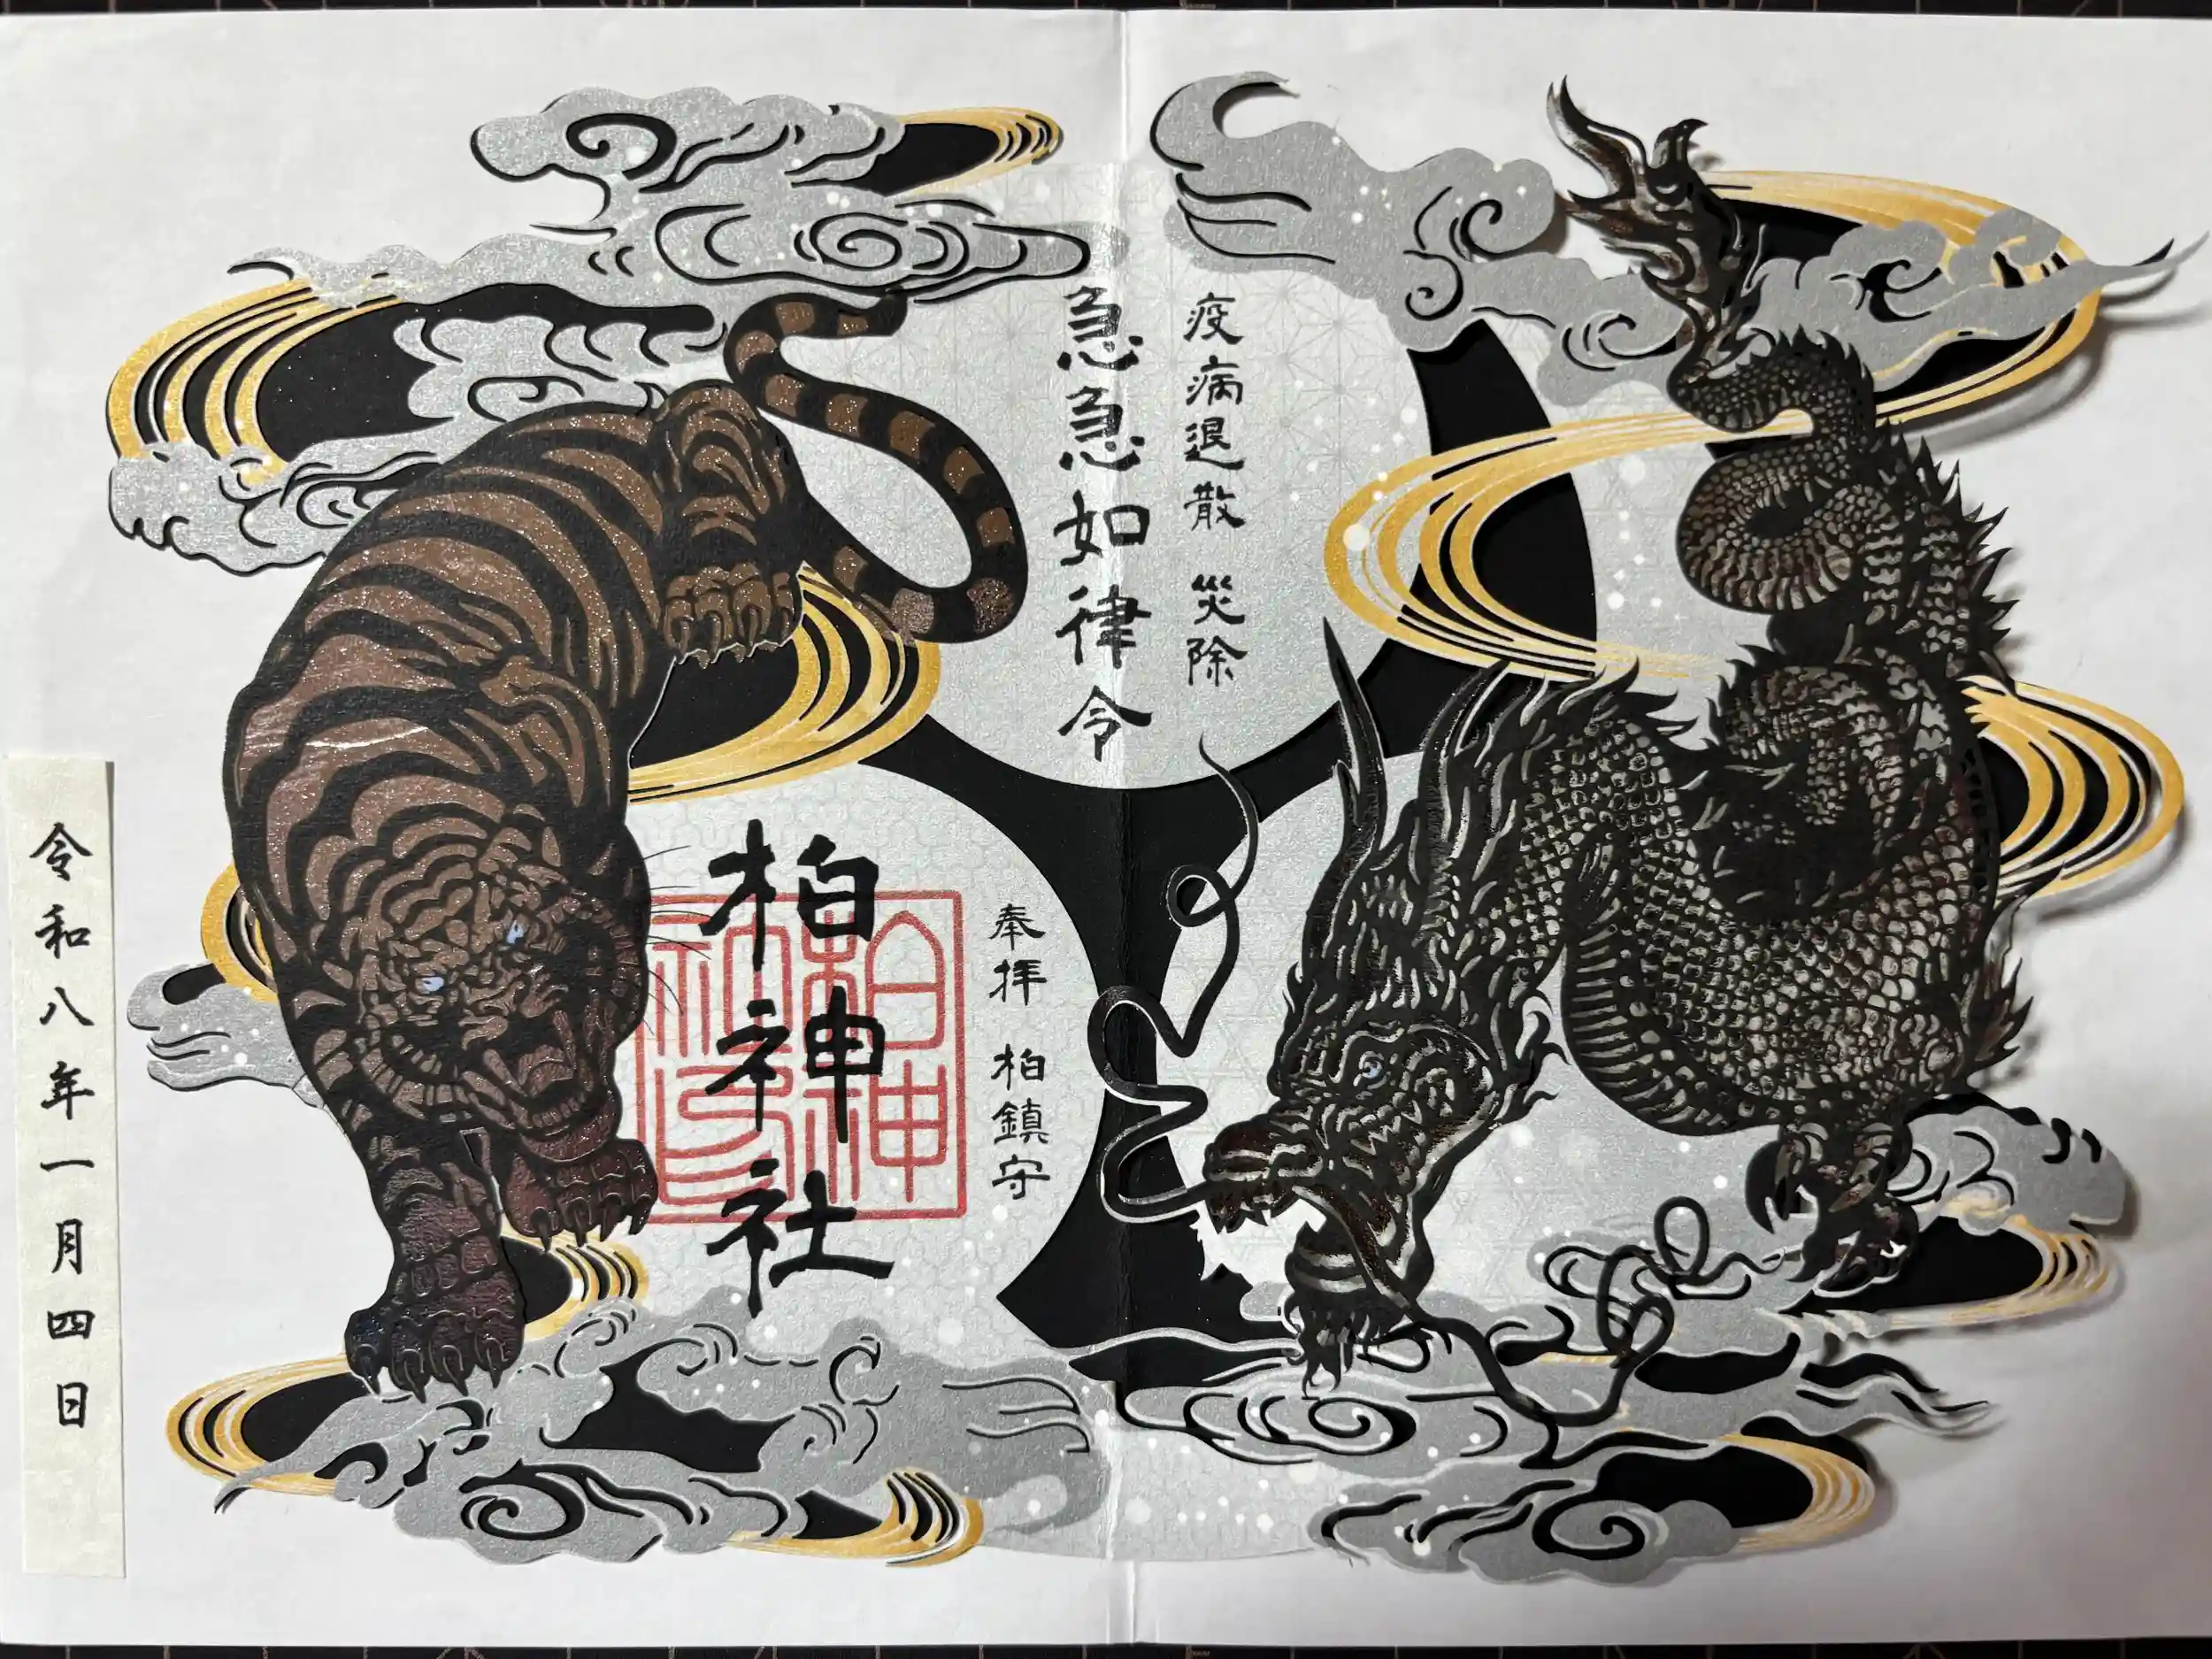 疫病退散 災除
急急如律令
奉拝 柏鎮守
柏神社
柏神社印
令和八年一月四日